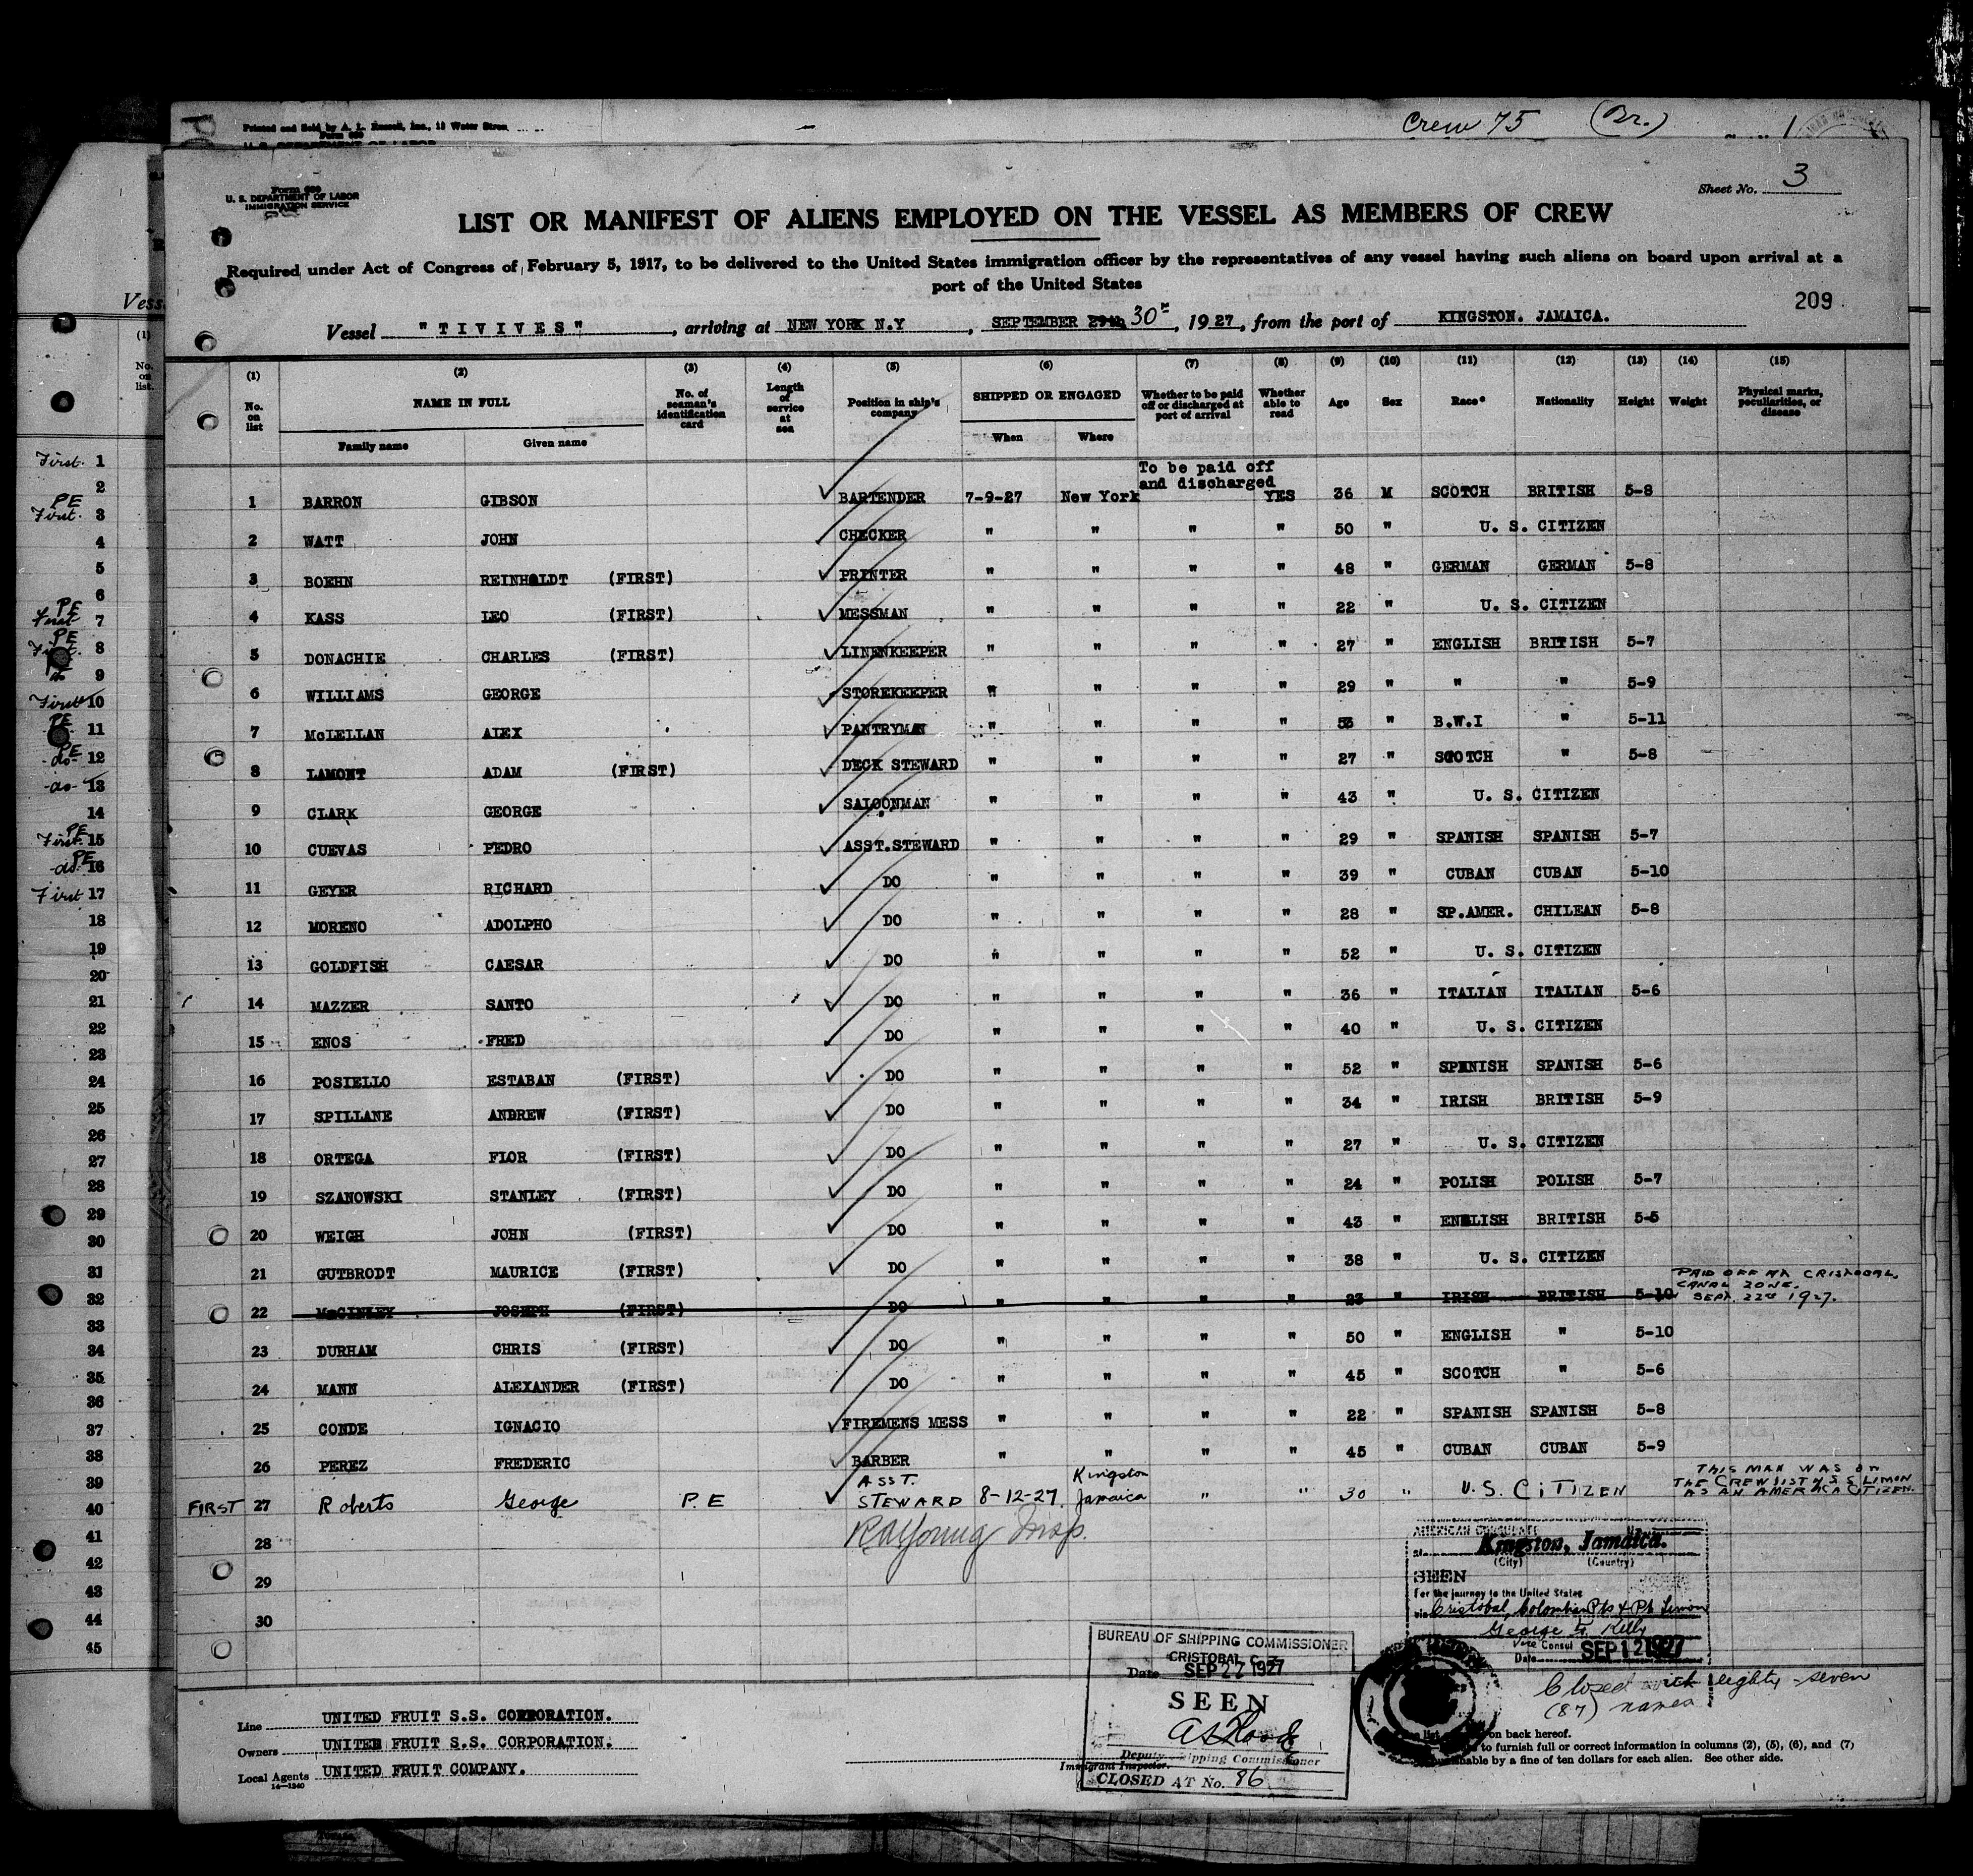 Printed and Sold by A. L. Russell, Inc., 12 Water Stree
Crew 75 (Br.) 1
Form 689
U. S. DEPARTMENT OF LABOR
IMMIGRATION SERVICE
Sheet No. 3
LIST OR MANIFEST OF ALIENS EMPLOYED ON THE VESSEL AS MEMBERS OF CREW
Required under Act of Congress of February 5, 1917, to be delivered to the United States immigration officer by the representatives of any vessel having such aliens on board upon arrival at a
port of the United States
209
Vessel "TIVIVES", arriving at NEW YORK N.Y, SEPTEMBER 29th 30th, 1927, from the port of KINGSTON. JAMAICA.
(1) (2) (3) (4) (5) (6) (7) (8) (9) (10) (11) (12) (13) (14) (15)
No. on list NAME IN FULL No. of seaman's identification card Length of service at sea Position in ship's company SHIPPED OR ENGAGED Whether to be paid off or discharged at port of arrival Whether able to read Age Sex Race* Nationality Height Weight Physical marks, peculiarities, or disease
Family name Given name When Where
To be paid off
and discharged
1 BARRON GIBSON BARTENDER 7-9-27 New York YES 36 M SCOTCH BRITISH 5-8
2 WATT JOHN CHECKER " " " " 50 " U. S. CITIZEN
3 BOEHN REINHOLDT (FIRST) PRINTER " " " " 48 " GERMAN GERMAN 5-8
4 KASS LEO (FIRST) MESSMAN " " " " 22 " U. S. CITIZEN
5 DONACHIE CHARLES (FIRST) LINENKEEPER " " " " 27 " ENGLISH BRITISH 5-7
6 WILLIAMS GEORGE STOREKEEPER " " " " 29 " " " 5-9
7 McLELLAN ALEX PANTRYMAN " " " " 53 " B.W.I " 5-11
8 LAMONT ADAM (FIRST) DECK STEWARD " " " " 27 " SCOTCH " 5-8
9 CLARK GEORGE SALOONMAN " " " " 43 " U. S. CITIZEN
10 CUEVAS PEDRO ASST.STEWARD " " " " 29 " SPANISH SPANISH 5-7
11 GEYER RICHARD DO " " " " 39 " CUBAN CUBAN 5-10
12 MORENO ADOLPHO DO " " " " 28 " SP.AMER. CHILEAN 5-8
13 GOLDFISH CAESAR DO " " " " 52 " U. S. CITIZEN
14 MAZZER SANTO DO " " " " 36 " ITALIAN ITALIAN 5-6
15 ENOS FRED DO " " " " 40 " U. S. CITIZEN
16 POSIELLO ESTABAN (FIRST) DO " " " " 52 " SPENISH SPANISH 5-6
17 SPILLANE ANDREW (FIRST) DO " " " " 34 " IRISH BRITISH 5-9
18 ORTEGA FLOR (FIRST) DO " " " " 27 " U. S. CITIZEN
19 SZANOWSKI STANLEY (FIRST) DO " " " " 24 " POLISH POLISH 5-7
20 WEIGH JOHN (FIRST) DO " " " " 43 " ENGLISH BRITISH 5-5
21 GUTBRODT MAURICE (FIRST) DO " " " " 38 " U. S. CITIZEN
22 McGINLEY JOSEPH (FIRST) DO " " " " 23 " IRISH BRITISH 5-10 PAID OFF AT CRISTOBAL, CANAL ZONE. SEPT. 22nd 1927.
23 DURHAM CHRIS (FIRST) DO " " " " 50 " ENGLISH " 5-10
24 MANN ALEXANDER (FIRST) DO " " " " 45 " SCOTCH " 5-6
25 CONDE IGNACIO FIREMENS MESS " " " " 22 " SPANISH SPANISH 5-8
26 PEREZ FREDERIC BARBER " " " " 45 " CUBAN CUBAN 5-9
FIRST 27 Roberts George P.E ASST. STEWARD 8-12-27. Kingston Jamaica " " 30 " U.S. CITIZEN THIS MAN WAS ON THE CREW LIST of S S LIMON AS AN AMERICA CITIZEN.
28 RAYoung Insp.
29
30
AMERICAN CONSULATE
At Kingston, Jamaica.
(City) (Country)
SEEN
For the journey to the United States
via Cristobal, Colombian Pts & Pt Limon
George G. Kelly
Vice Consul
Date SEP 12 1927
Closed with eighty-seven
(87) names
BUREAU OF SHIPPING COMMISSIONER
CRISTOBAL C. Z.
Date SEP 22 1927
SEEN
Deputy Shipping Commissioner
Immigrant Inspector.
CLOSED AT No. 86
Line UNITED FRUIT S.S. CORPORATION.
Owners UNITED FRUIT S.S. CORPORATION.
Local Agents UNITED FRUIT COMPANY.
14—1240
on back hereof.
to furnish full or correct information in columns (2), (5), (6), and (7)
able by a fine of ten dollars for each alien. See other side.
Vess
(1)
No. on list.
First 1
2
PE First. 3
4
5
6
PE First 7
PE 8
9
First 10
PE 11
PE do 12
do 13
14
PE First 15
PE do 16
First 17
18
19
20
21
22
23
24
25
26
27
28
29
30
31
32
33
34
35
36
37
38
39
40
41
42
43
44
45